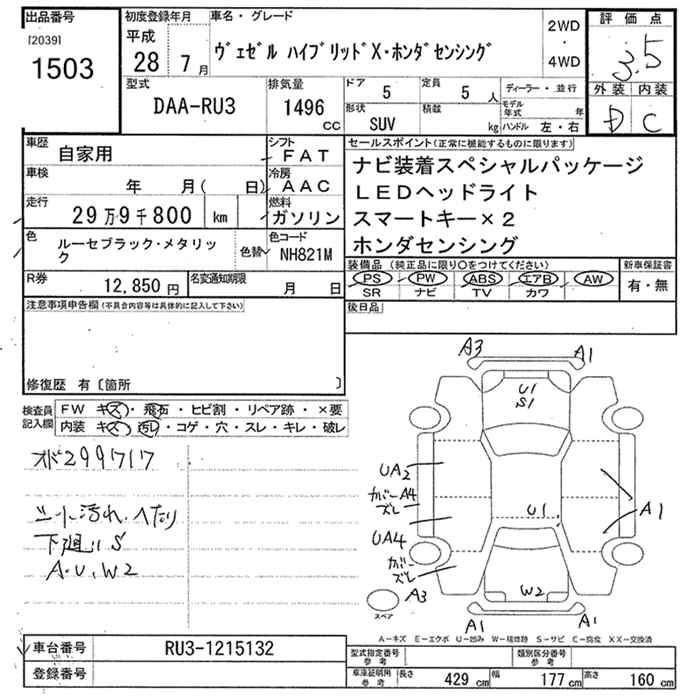 出品番号
[2039]
1503
初度登録年月
平成
28 7月
車名・グレード
ヴェゼル ハイブリッドX・ホンダセンシング
2WD
・
4WD
評価点
3.5
外装 内装
D C
型式
DAA-RU3
排気量
1496
CC
ドア
5
定員
5 人
形状
SUV
積載
kg
ディーラー・並行
モデル年式 年
ハンドル 左・右
車歴
自家用
シフト
FAT
車検
年 月( 日)
冷房
AAC
走行
29万9千800 km
燃料
ガソリン
色
ルーセブラック・メタリック
色替
色コード
NH821M
R券
12,850 円
名変通知期限
月 日
セールスポイント(正常に機能するものに限ります)
ナビ装着スペシャルパッケージ
LEDヘッドライト
スマートキー×2
ホンダセンシング
装備品 (純正品に限り○をつけてください)
PS PW ABS エアB AW
SR ナビ TV カワ
新車保証書
有・無
後日品
注意事項申告欄(不具合内容等は具体的に記入して下さい)
修復歴 有〔箇所 〕
検査員記入欄
FW キズ・飛石・ヒビ割・リペア跡・×要
内装 キズ・汚れ・コゲ・穴・スレ・キレ・破レ
オド299717
シート汚れ、へたり
下廻りS
A・U、W2
A3
A1
U1
S1
UA2
カバーA4
ズレ
UA4
カバー
ズレ
A3
U1
A1
W2
A1
A1
スペア
A-キズ E-エクボ U-凹み W-補修跡 S-サビ C-腐食 XX-交換済
車台番号
RU3-1215132
登録番号
型式指定番号
参考
類別区分番号
参考
車庫証明用
参考
長さ 429 cm
幅 177 cm
高さ 160 cm